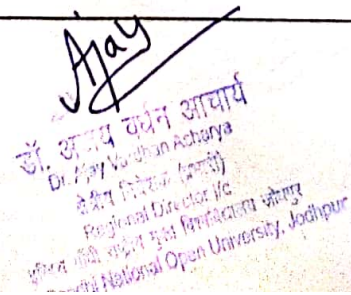 Ajay
डॉ. अजय वर्धन आचार्य
Dr. Ajay Vardhan Acharya
क्षेत्रीय निदेशक (प्रभारी)
Regional Director I/c
राष्ट्रीय मुक्त विश्वविद्यालय जोधपुर
National Open University, Jodhpur